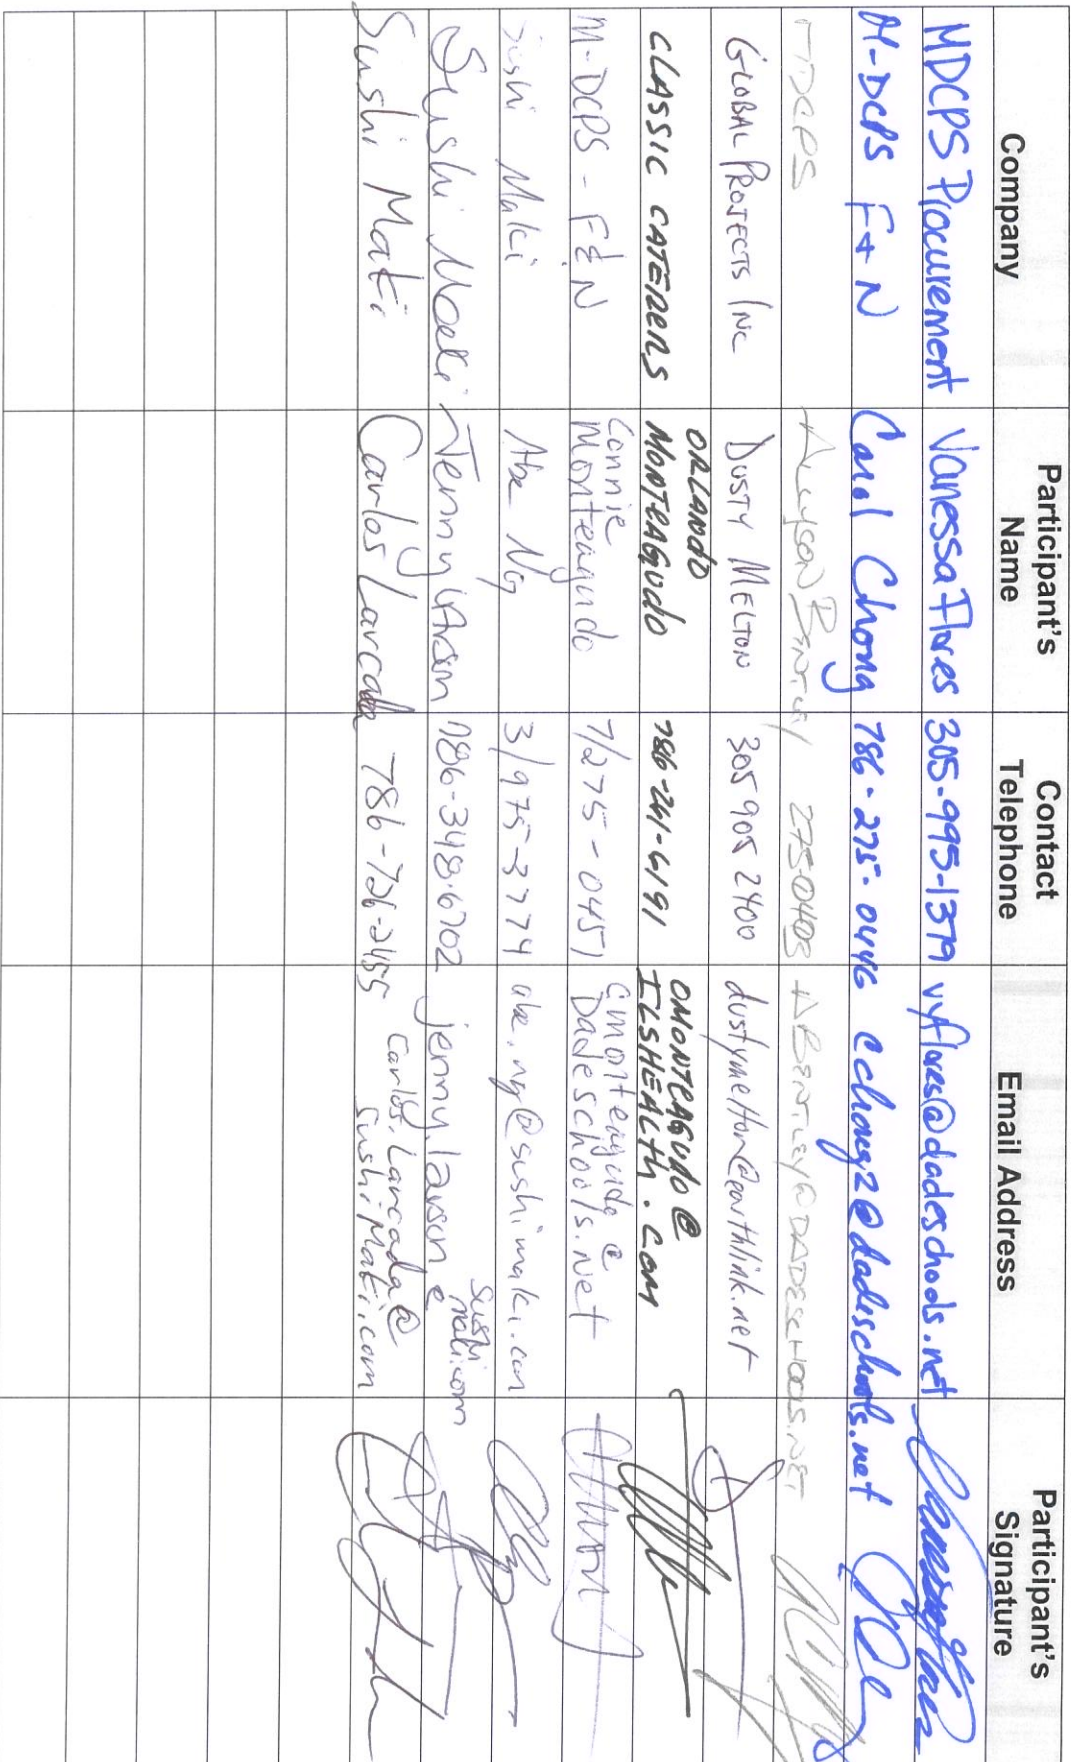 Company Participant's Name Contact Telephone Email Address Participant's Signature
MDCPS Procurement Vanessa Flores 305-995-1379 vyflores@dadeschools.net
M-DCPS F+N Carol Chong 786-275-0446 cchong2@dadeschools.net
MDCPS Allyson Bentley 275-0403 ABENTLEY@DADESCHOOLS.NET
GLOBAL PROJECTS INC DUSTY MELTON 305 905 2400 dustymelton@earthlink.net
CLASSIC CATERERS ORLANDO MONTEAGUDO 786-241-6191 OMONTEAGUDO@ILSHEALTH.COM
M-DCPS - F&N Connie Monteagudo 7/275-0451 cmonteagudo@Dadeschools.net
Sushi Maki Abe Ng 3/975-3774 abe.ng@sushimaki.com
Sushi Maki Jenny Larson 786-348-6702 jenny.larson@sushimaki.com
Sushi Maki Carlos Larcada 786-726-2155 Carlos.Larcada@SushiMaki.com